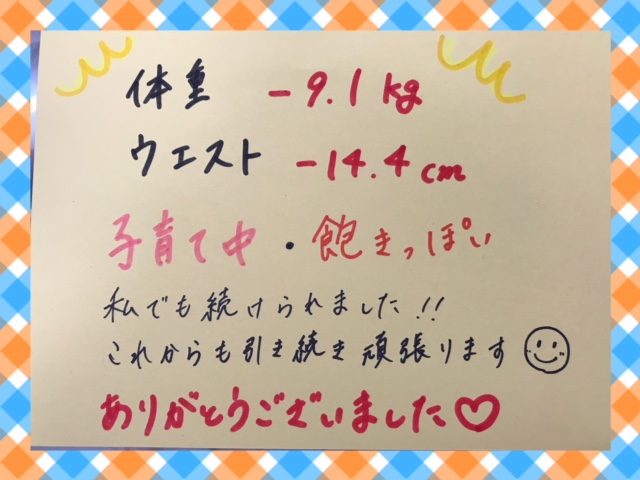 体重 -9.1kg
ウエスト -14.4cm
子育て中・飽きっぽい
私でも続けられました!!
これからも引き続き頑張ります
ありがとうございました♡